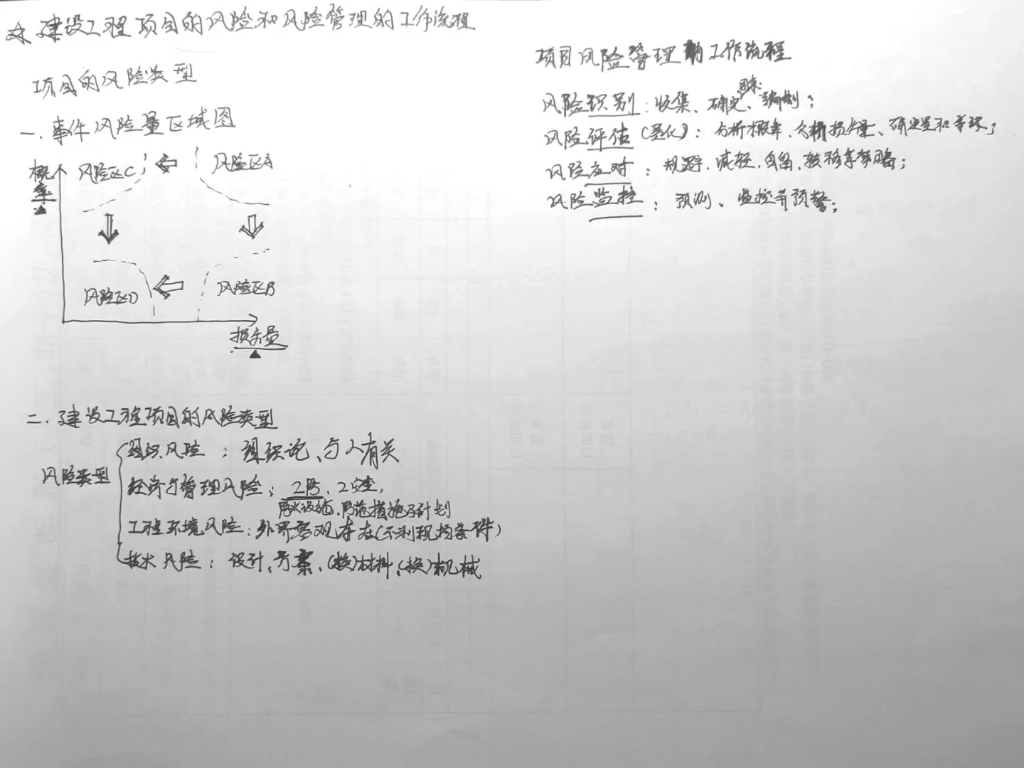 ☆ 建设工程项目的风险和风险管理的工作流程
项目的风险类型
一.事件风险量区域图
概率
风险区C
风险区A
风险区D
风险区B
损失量
二.建设工程项目的风险类型
风险类型
组织风险：组织论、与人有关
经济与管理风险：2防,2安全,
防火设施.防范措施与计划
工程环境风险：外界客观存在(不利现均条件)
技术风险：设计、方案、(换)材料、(换)机械
项目风险管理的工作流程
因素
风险识别：收集、确定、编制；
风险评估(量化)：分析概率、分析损失量、确定量和等级；
风险应对：规避.减轻.自留.转移等策略；
风险监控：预测、监控并预警；